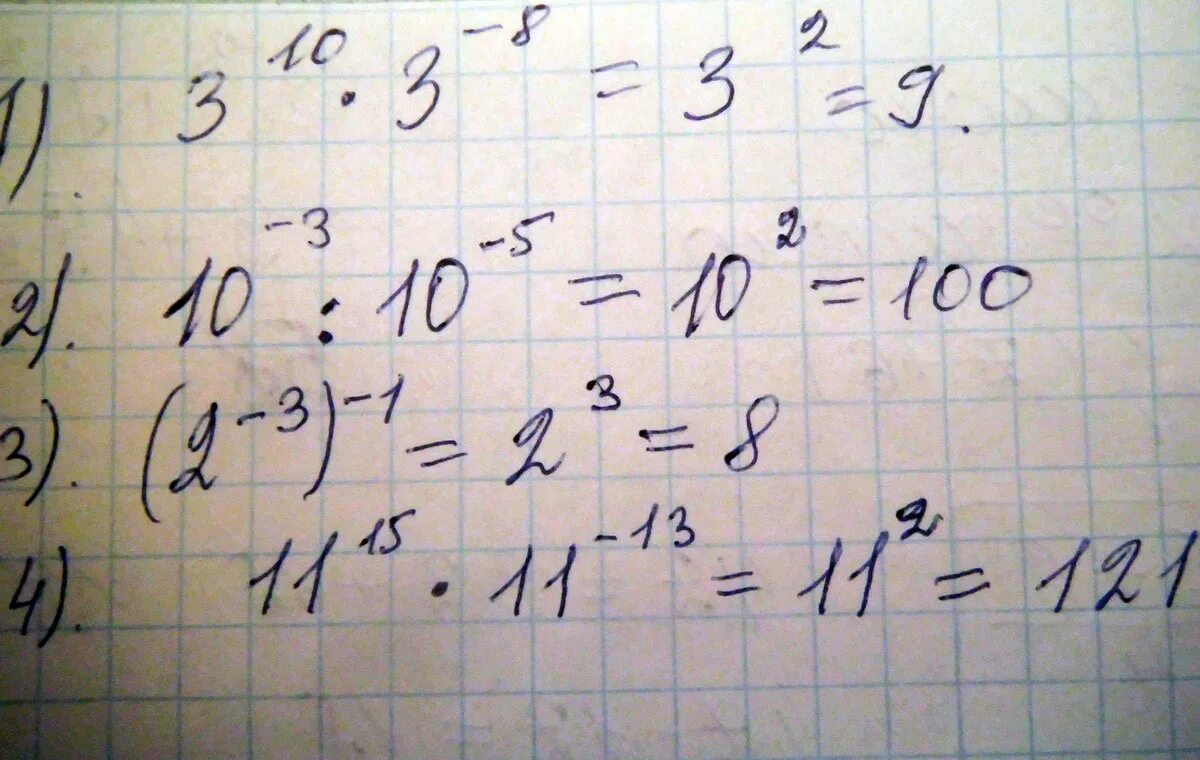 1). 3¹⁰ · 3⁻⁸ = 3² = 9.
2). 10⁻³ : 10⁻⁵ = 10² = 100
3). (2⁻³)⁻¹ = 2³ = 8
4). 11¹⁵ · 11⁻¹³ = 11² = 121